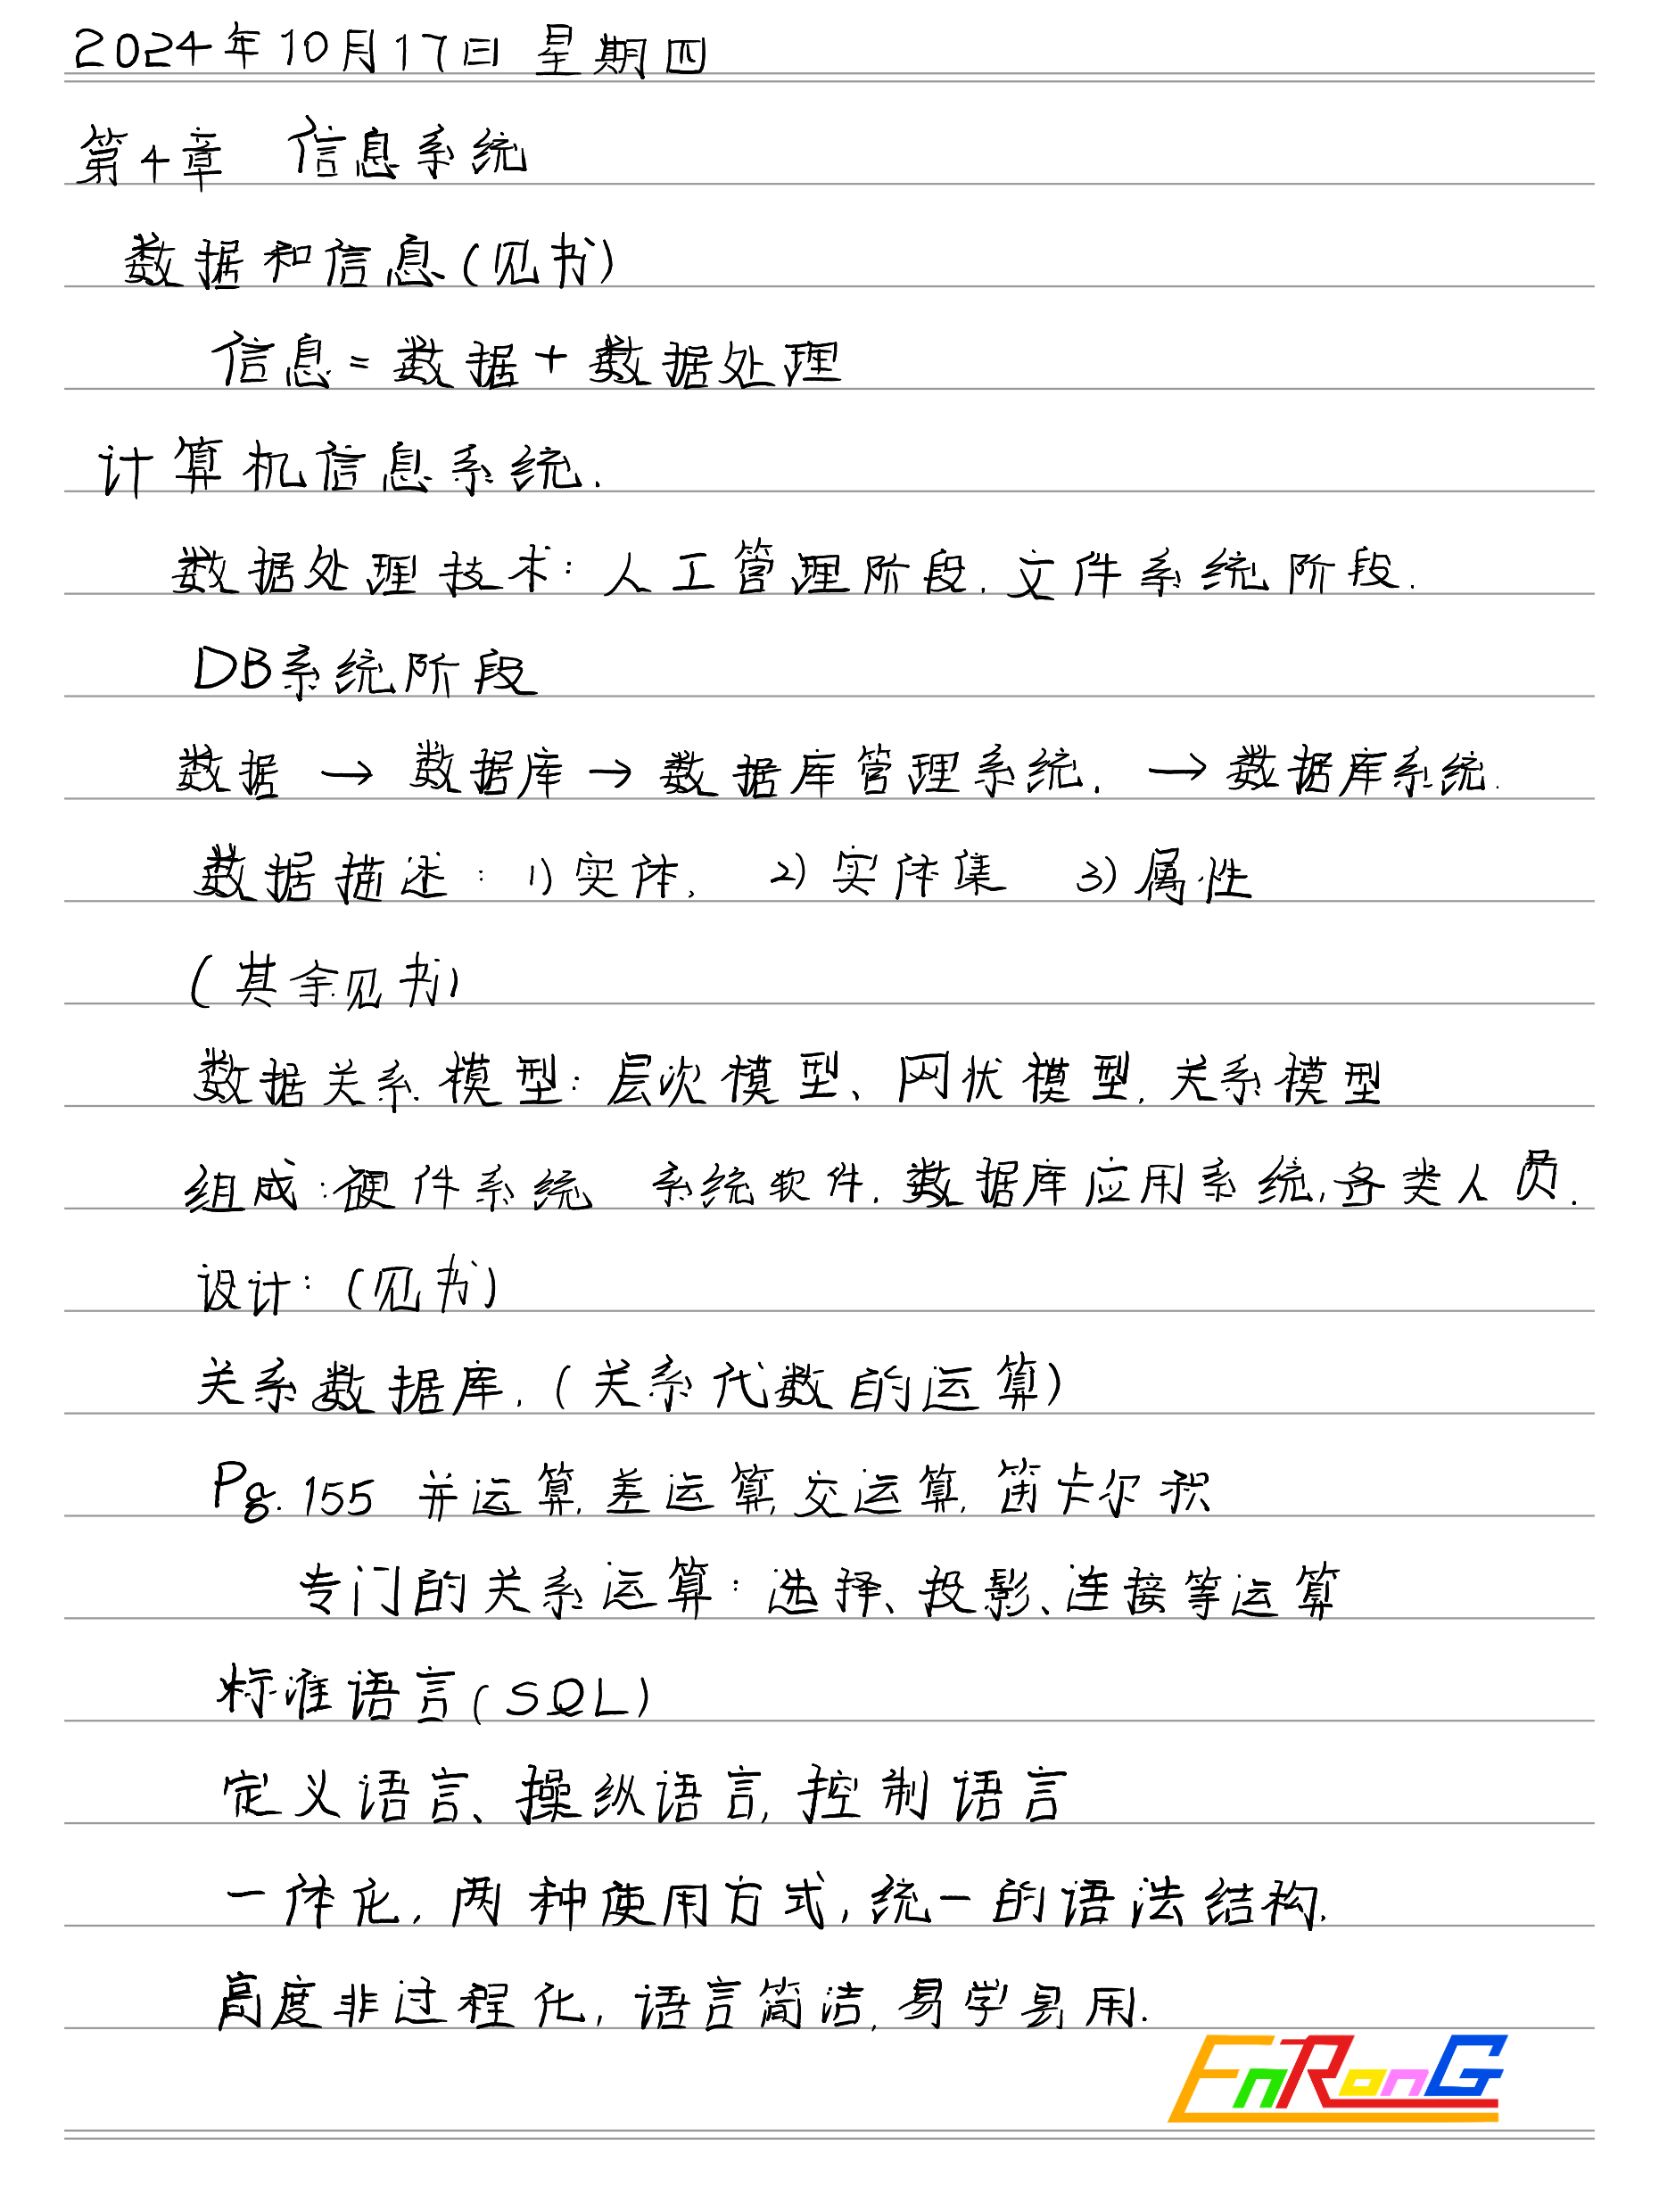 2024年10月17日 星期四
第4章 信息系统
数据和信息(见书)
信息=数据+数据处理
计算机信息系统.
数据处理技术: 人工管理阶段. 文件系统阶段.
DB系统阶段
数据 → 数据库 → 数据库管理系统. → 数据库系统.
数据描述: 1)实体. 2)实体集 3)属性
(其余见书)
数据关系模型: 层次模型、网状模型. 关系模型
组成: 硬件系统 系统软件. 数据库应用系统, 各类人员.
设计: (见书)
关系数据库. (关系代数的运算)
Pg. 155 并运算, 差运算, 交运算, 笛卡尔积
专门的关系运算: 选择、投影、连接等运算
标准语言(SQL)
定义语言、操纵语言, 控制语言
一体化, 两种使用方式, 统一的语法结构.
高度非过程化, 语言简洁, 易学易用.
EnRonG